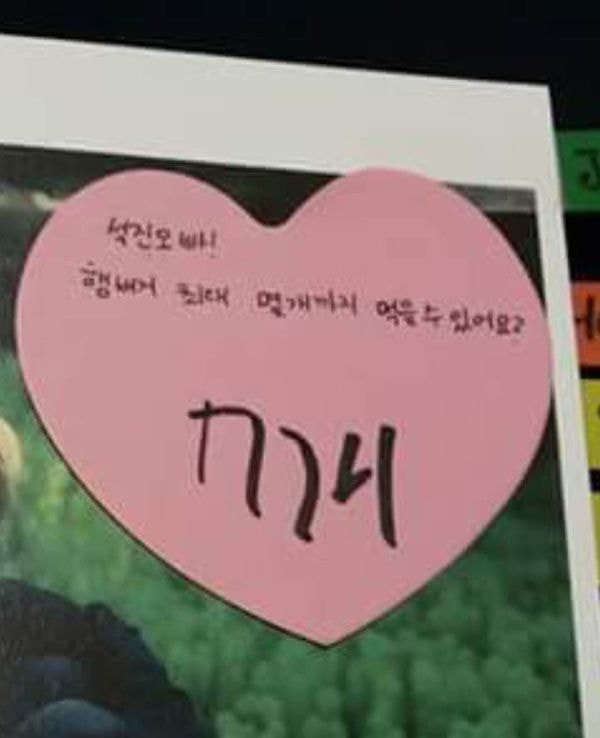 석진오빠!
햄버거 최대 몇개까지 먹을수있어요?
7개
J
He